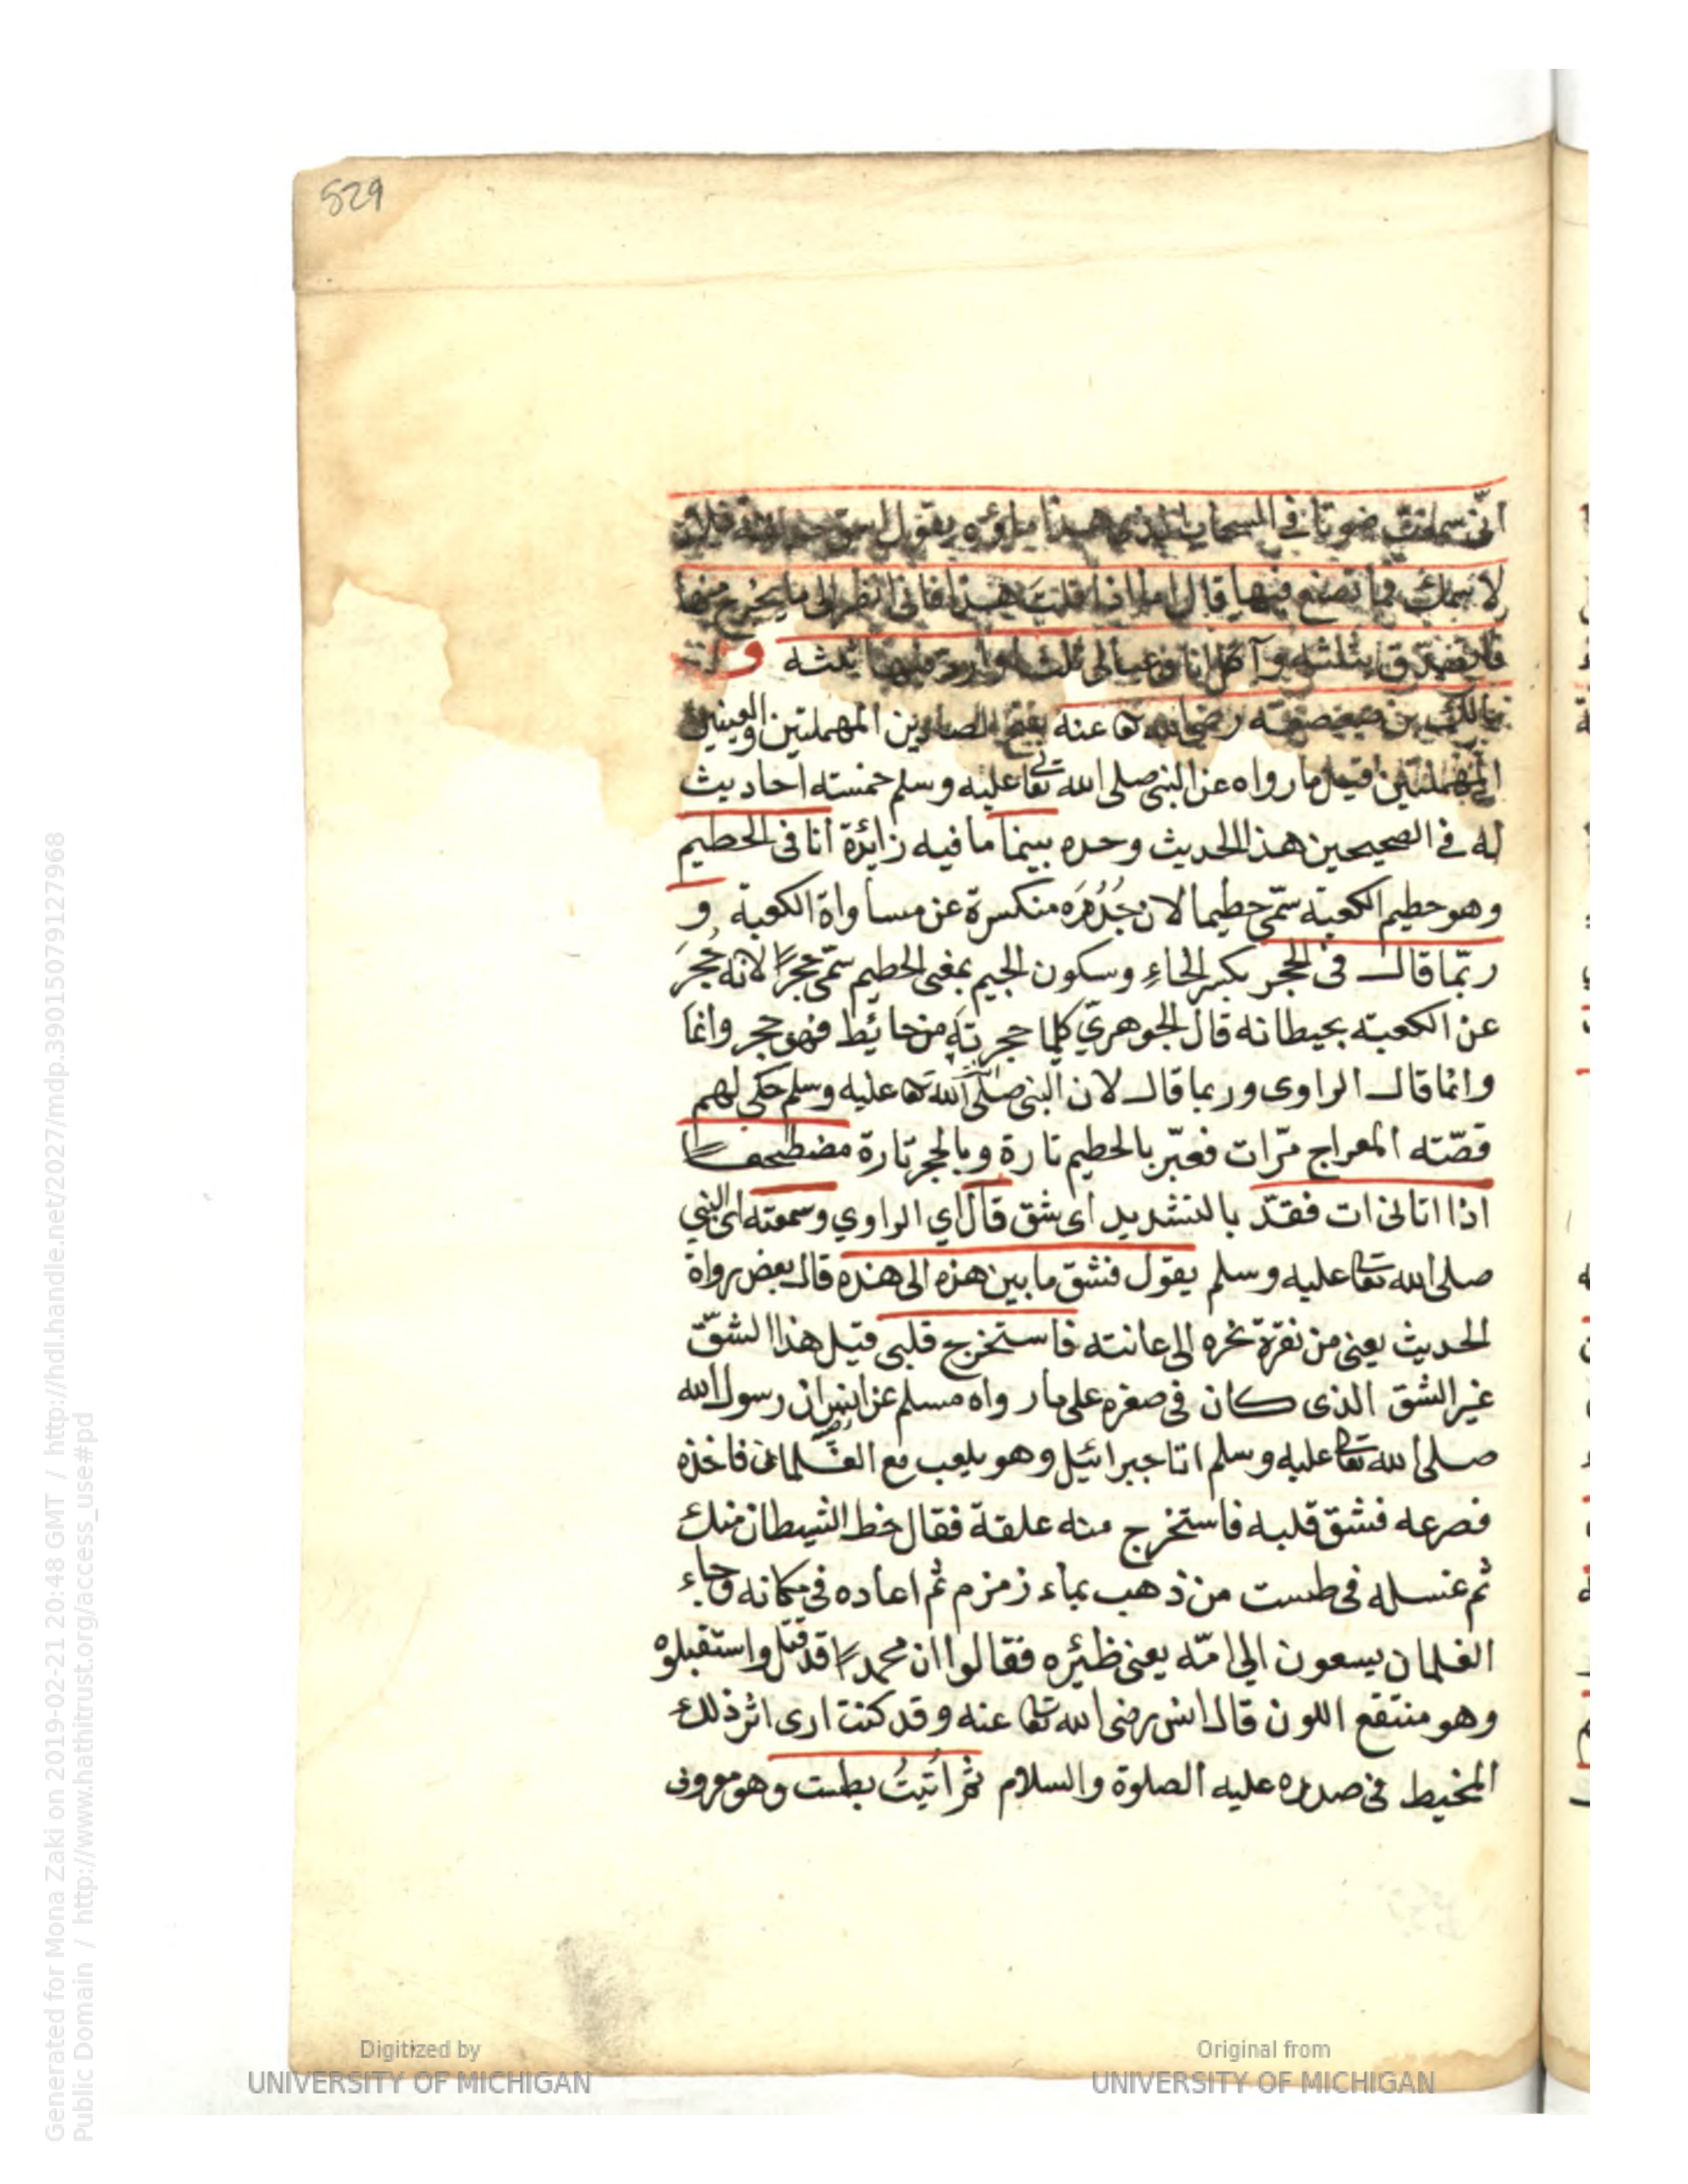 529
انى سمعت صوتا فى السحاب الذى هذا ماؤه يقول اسق حديقة فلان
لاسمك فما تصنع فيها قال اما اذا قلت هذا فانى انظر الى ما يخرج منها
فاتصدق بثلثه وآكل انا وعيالى ثلثا وارد فيها ثلثه و
مالك بن صعصعة رضى الله تعا عنه بفتح الصادين المهملتين والعينين
المهملتين قيل ما رواه عن النبى صلى الله تعالى عليه وسلم خمسة احاديث
له فى الصحيحين هذا الحديث وحده بينما ما فيه زائدة انا فى الحطيم
وهو حطيم الكعبة سمّى حطيما لان جُدُرَه منكسرة عن مساواة الكعبة و
ربّما قال فى الحجر بكسر الحاءِ وسكون الجيم بمعنى الحطيم سمّى حجرًا لانه حُجِرَ
عن الكعبة بحيطانه قال الجوهريّ كلما حجرته من حائط فهو حجر وانما
وانما قال الراوى وربما قال لان النبى صلّى الله تعا عليه وسلم حكى لهم
قصّته المعراج مرّات فعبّر بالحطيم تارة وبالحجر تارة مضطجعـــا
اذا اتانى ات فقدّ بالتشديد اى شق قال اي الراوي وسمعته اى النبي
صلى الله تعا عليه وسلم يقول فشق ما بين هذه الى هذه قال بعض رواة
الحديث يعنى من نقرة نحره الى عانته فاستخرج قلبى قيل هذا الشقّ
غير الشق الذى كان فى صغره على ما رواه مسلم عن انس ان رسول الله
صلى الله تعا عليه وسلم اتا جبرائيل وهو يلعب مع الغلمان فاخذه
فصرعه فشقّ قلبه فاستخرج منه علقة فقال خط الشيطان منك
ثم غسله فى طست من ذهب بماء زمزم ثم اعاده فى مكانه وجاء
الغلمان يسعون الى امّه يعنى ظئره فقالوا ان محمدًا قد قتل واستقبلوه
وهو منتقع اللون قال انس رضى الله تعا عنه وقد كنت ارى اثر ذلك
المخيط فى صدره عليه الصلوة والسلام ثم اُتيتُ بطست وهو معرونى
Digitized by
UNIVERSITY OF MICHIGAN
Original from
UNIVERSITY OF MICHIGAN
Generated for Mona Zaki on 2019-02-21 20:48 GMT / http://hdl.handle.net/2027/mdp.39015079127968
Public Domain / http://www.hathitrust.org/access_use#pd